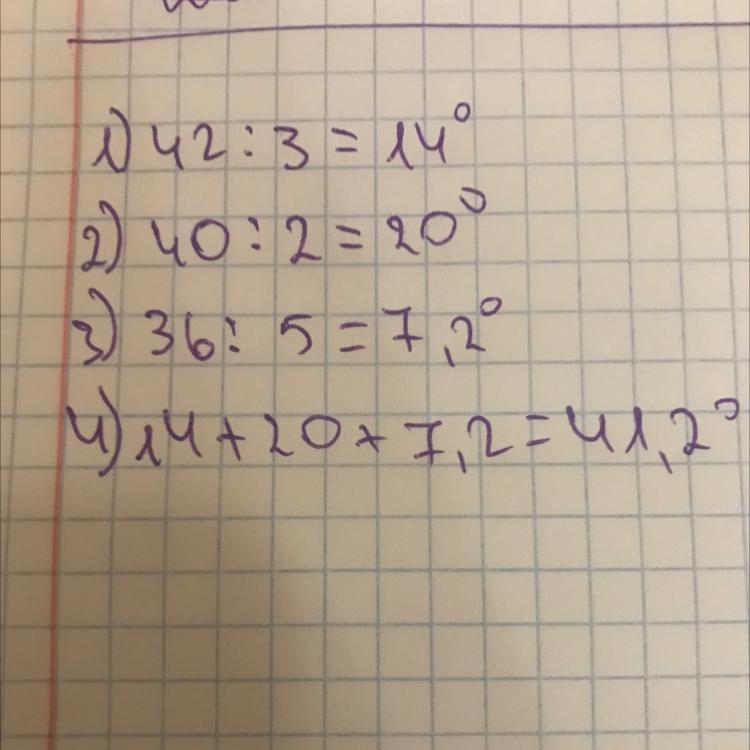 1) 42 : 3 = 14°
2) 40 : 2 = 20°
3) 36 : 5 = 7,2°
4) 14 + 20 + 7,2 = 41,2°